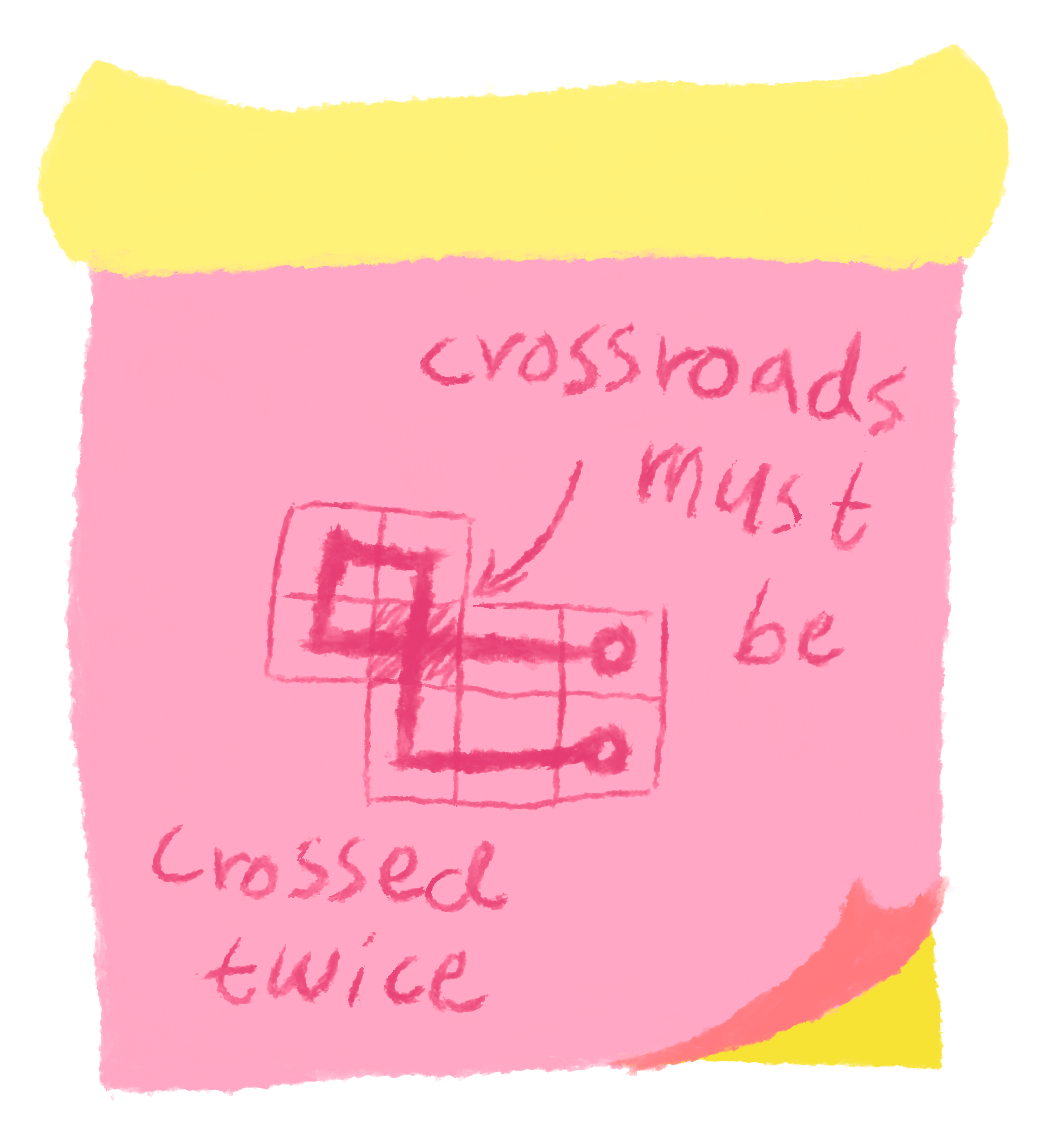 crossroads
must
be
crossed
twice